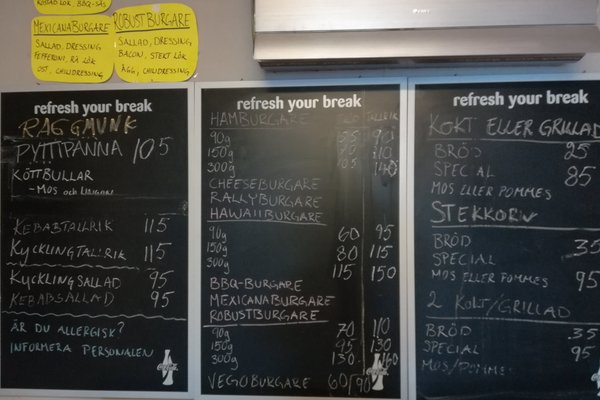 ROSTAD LÖK, BBQ-SÅS
MEXICANABURGARE
SALLAD, DRESSING
FEFFERONI, RÅ LÖK
OST, CHILIDRESSING
ROBUSTBURGARE
SALLAD, DRESSING,
BACON, STEKT LÖK
ÄGG, CHILIDRESSING
refresh your break
RAGGMUNK
PYTTIPANNA 105
KÖTTBULLAR
- MOS OCH LINGON
KEBABTALLRIK 115
KYCKLINGTALLRIK 115
KYCKLINGSALLAD 95
KEBABSALLAD 95
ÄR DU ALLERGISK?
INFORMERA PERSONALEN
refresh your break
HAMBURGARE TALLRIK
90g 55 90
150g 70 110
300g 105 140
CHEESEBURGARE
RALLYBURGARE
HAWAIIBURGARE
90g 60 95
150g 80 115
300g 115 150
BBQ-BURGARE
MEXICANABURGARE
ROBUSTBURGARE
90g 70 110
150g 95 130
300g 130 160
VEGOBURGARE 60/90
refresh your break
KOKT ELLER GRILLAD
BRÖD 25
SPECIAL 85
MOS ELLER POMMES
STEKKORV
BRÖD 35
SPECIAL 95
MOS ELLER POMMES
2 KOKT/GRILLAD
BRÖD 35
SPECIAL 95
MOS/POMMES